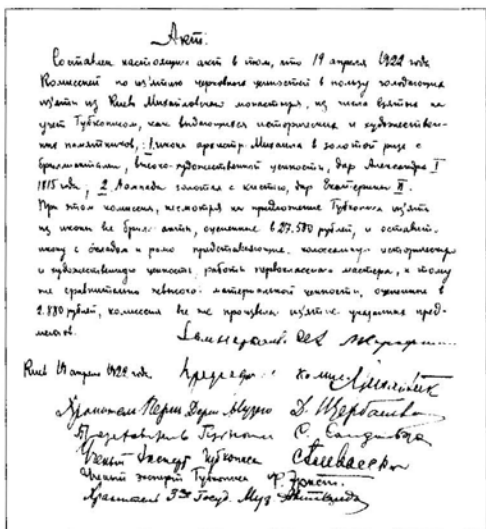 Акт.
Составлен настоящий акт в том, что 19 апреля 1922 года
Комиссией по из'ятию церковного ценностей в пользу голодающих
из'яты из Киево Михайловского монастыря, из числа взятые на
учет Губкописом, как выдающихся исторических и художествен-
ных памятников, : 1. икона архистр. Михаила в золотой ризе с
бриллиантами, высоко-художественной ценности, дар Александра I
1815 года, 2 Лампада золотая с кистью, дар Екатерины II.
При этом комиссия, несмотря на предложение Губкописа из'ять
из иконы все брилианты, оцененные в 27.500 рублей, и оставить
икону с окладом и рамо представляющие колоссальную историческую
и художественную ценность, работы первоклассного мастера, и тому
же сравнительно невысокой материальной ценности, оцененные в
2.880 рублей, комиссия все же произвела из'ятие указанных пред-
метов.
Киев 19 апреля 1922 года. Председ. Комис
Хранитель Перш. Держ. Музею Д. Щербаковс
Представитель Губкописа С.
Ученый Эксперт Губкописа
Ученый эксперт Губкописа Ф. Эрнст.
Хранитель 3го Госуд. Муз